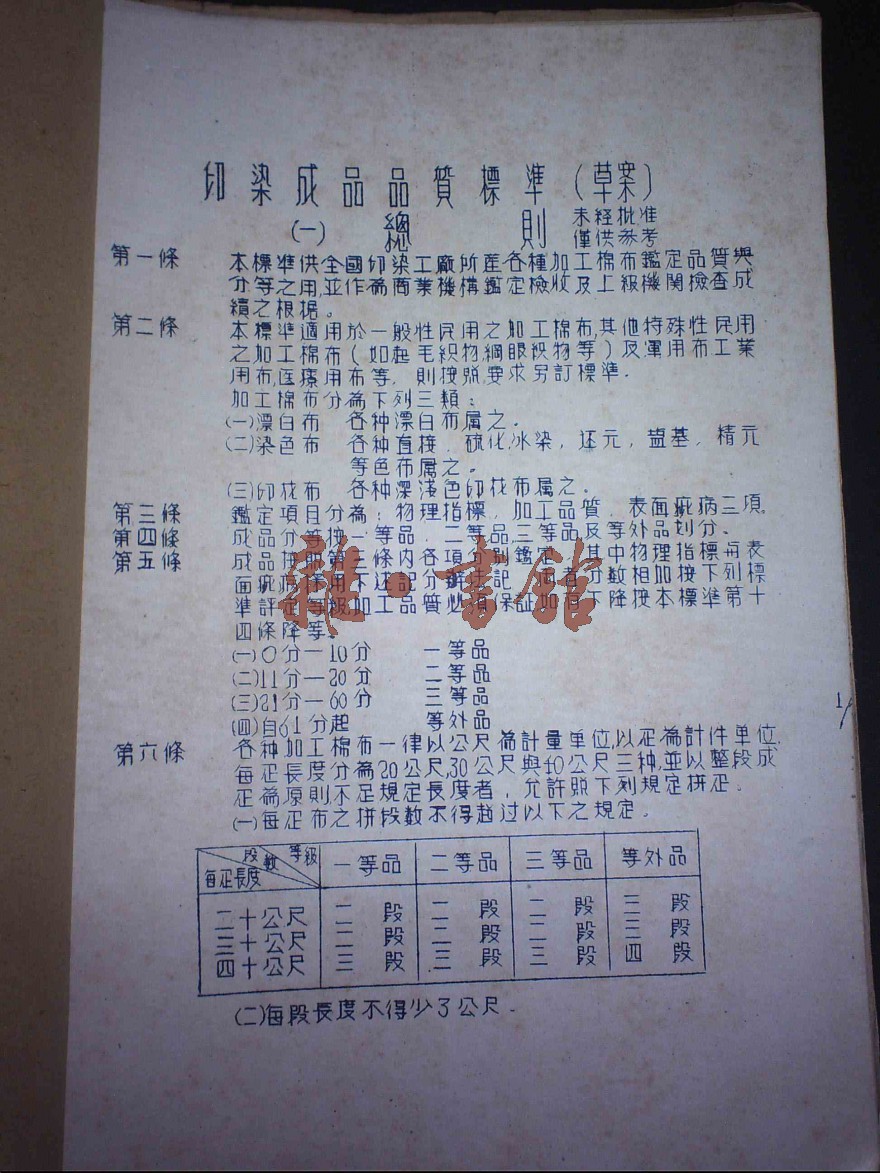 印染成品品質標準(草案)
(一) 總則 未経批准
僅供参考
第一條 本標準供全國印染工廠所產各種加工棉布鑑定品質與
分等之用,並作為商業機構鑑定檢收及上級機関檢查成
績之根据。
第二條 本標準適用於一般性民用之加工棉布,其他特殊性民用
之加工棉布(如起毛織物綱眼织物等)及軍用布工業
用布,医療用布等,則按照要求另訂標準.
加工棉布分為下列三類:
(一)漂白布 各种漂白布属之.
(二)染色布 各种直接.硫化,冰染,还元,盐基.精元
等色布属之.
(三)印花布 各种深淺色印花布属之.
第三條 鑑定項目分為:物理指標.加工品質.表面疵病三項.
第四條 成品分等按一等品.二等品,三等品及等外品划分.
第五條 成品按照第三條内各項分別鑑定,其中物理指標和表
面疵病採用下述記分辦法記,两者分数相加按下列標
準評定等級,加工品質必須保証如有下降按本標準第十
四條降等.
(一)0分—10分 一等品
(二)11分—20分 二等品
(三)21分—60分 三等品
(四)自61分起 等外品
第六條 各种加工棉布一律以公尺為計量单位,以疋為計件单位,
每疋長度分為20公尺,30公尺與40公尺三种,並以整段成
疋為原則,不足規定長度者,允許照下列規定拼疋。
(一)每疋布之拼段數不得超过以下之規定.
段數 等級 每疋長度 一等品 二等品 三等品 等外品
二十公尺 二段 二段 二段 三段
三十公尺 二段 二段 二段 三段
四十公尺 三段 三段 三段 四段
(二)每段長度不得少3公尺.
1/
雜·書館